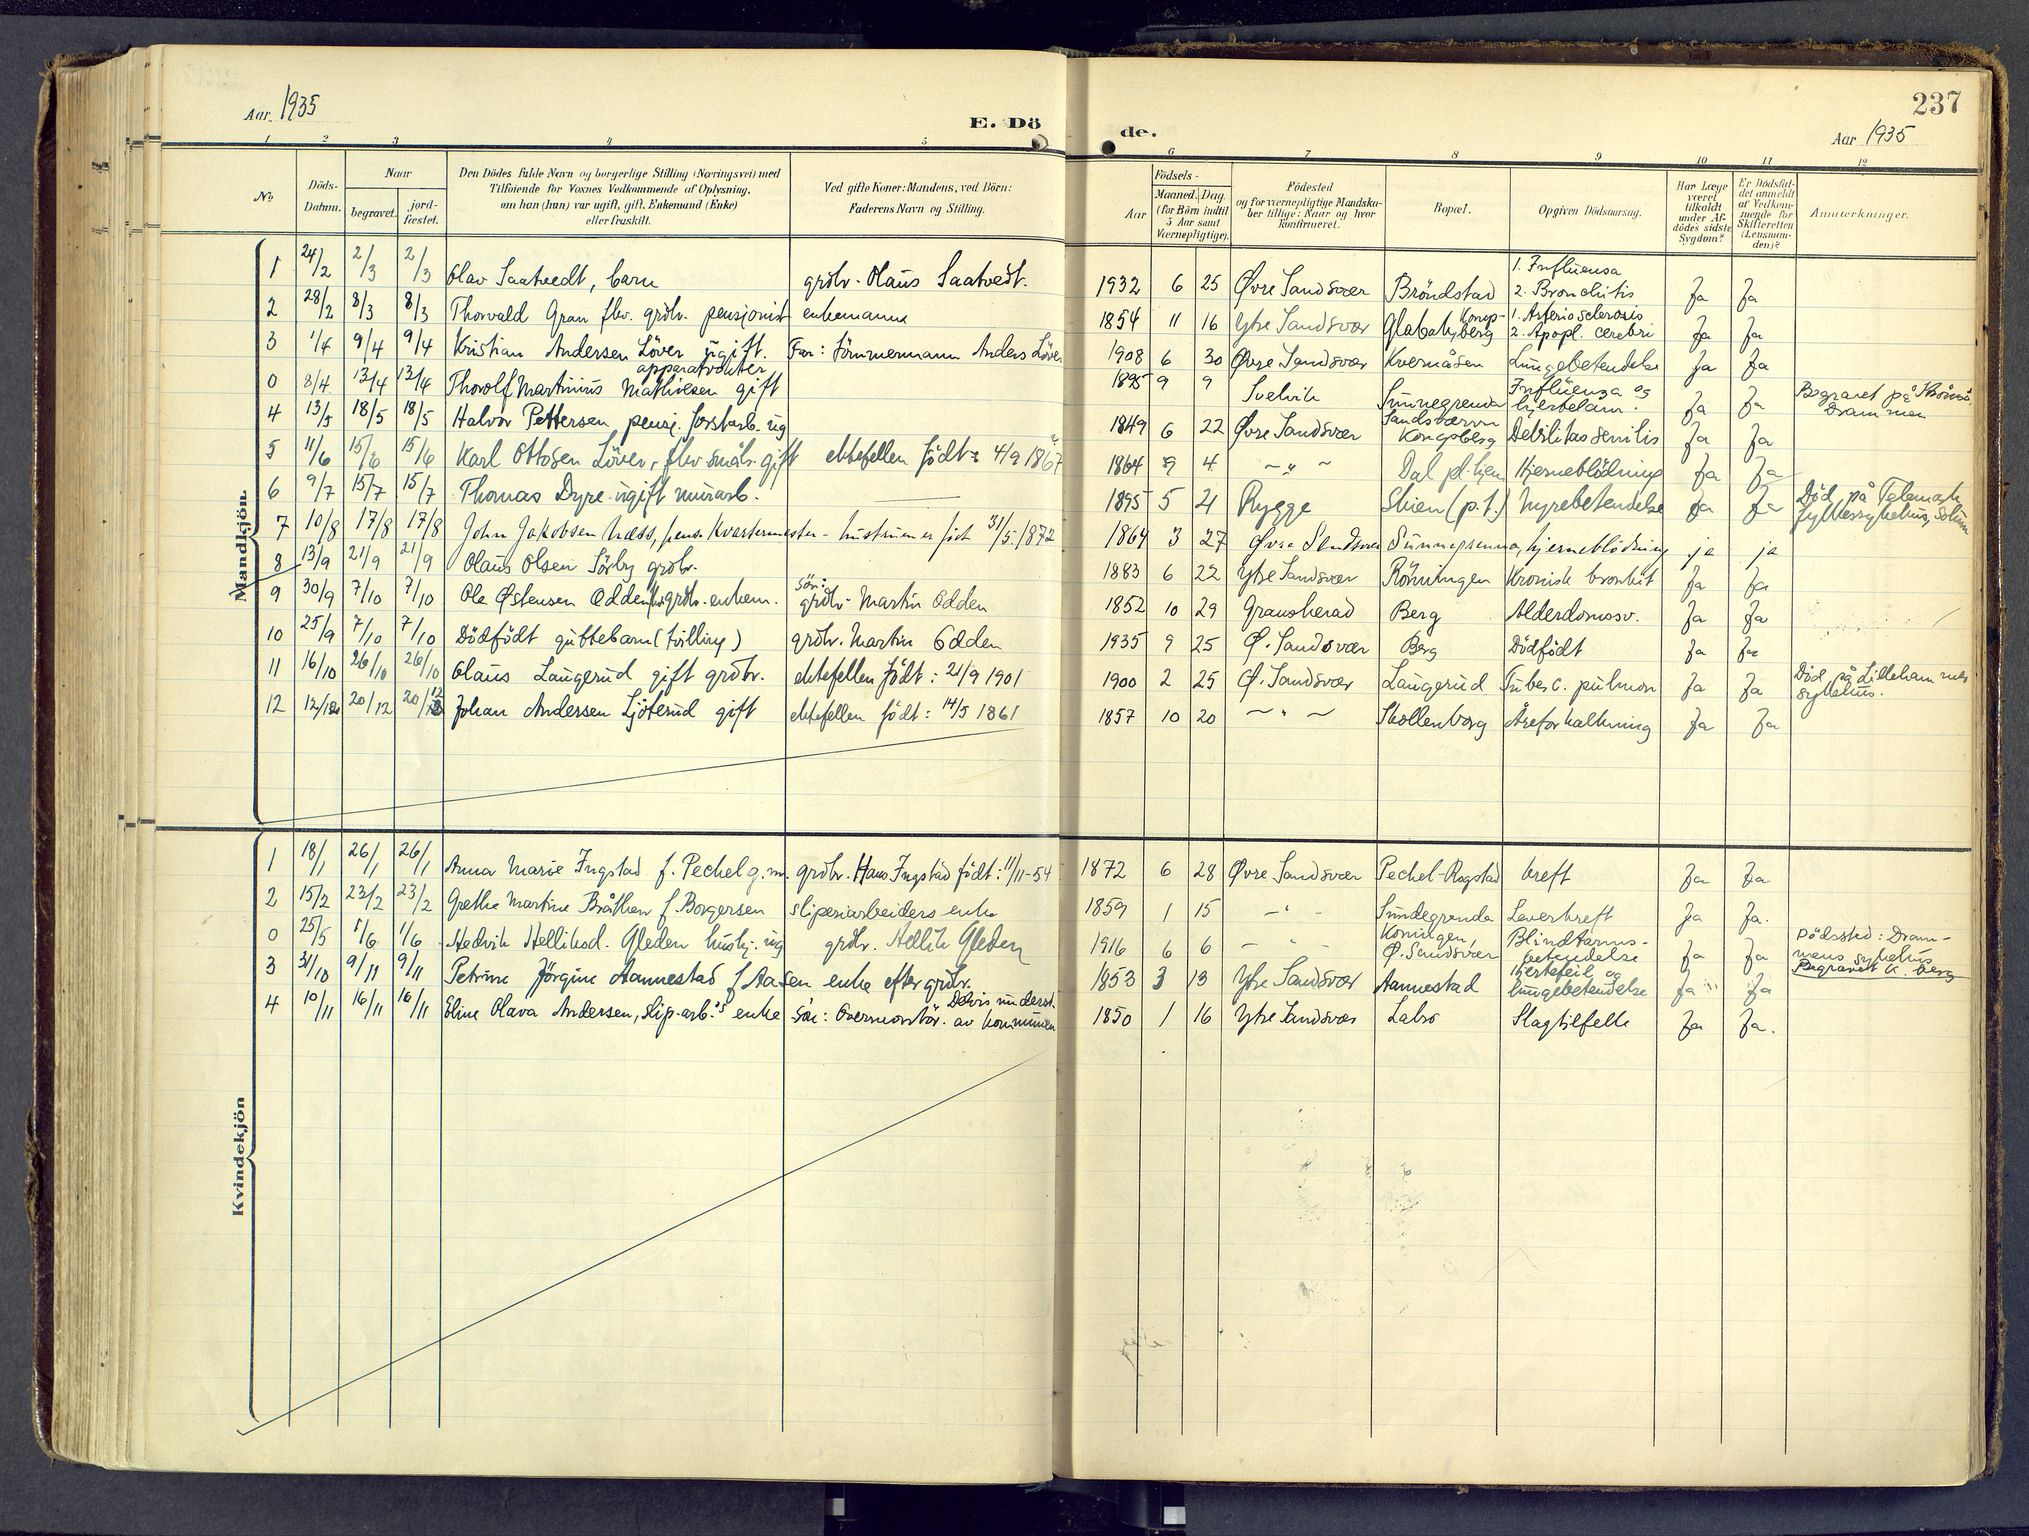 Aar 1935
E. Dö
de.
237
Aar 1935
1 2 3 4 5 6 7 8 9 10 11 12
No.
Döds-Datum.
Naar
begravet.
jord-fæstet.
Den Dödes fulde Navn og borgerlige Stilling (Næringsvei) med
Tilföiende for Voxnes Vedkommende af Oplysning,
om han (hun) var ugift, gift, Enkemand (Enke)
eller fraskilt.
Ved gifte Koner: Mandens, ved Börn:
Faderens Navn og Stilling.
Födsels-
Aar
Maaned. Dag.
(for Börn indtil
5 Aar samt
Værnepligtige).
Födested
og for værnepligtige Mandska-
ber tillige: Naar og hvor
konfirmeret.
Bopæl.
Opgiven Dödsaarsag.
Har Læge
været
tilkaldt
under Af-
dödes sidste
Sygdom?
Er Dödsfal-
det anmeldt
af Vedkom-
mende for
Skifteretten
(Lensman-
den)?
Anmærkninger.
Mandkjön.
1 24/2 2/3 2/3 Olav Saatvedt, barn grdbr. Olaus Saatvedt. 1932 6 25 Øvre Sandsvær Bröndstad 1. Influensa 2. Bronchitis Ja Ja
2 28/2 8/3 8/3 Thorvald Gran fhv. grdbr. pensjonist enkemann 1854 11 16 Ytre Sandsvær Kongsberg 1. Arteriosclerosis 2. Apopl. cerebri Ja Ja
3 1/4 9/4 9/4 Kristian Andersen Löver ugift. Far: Tömmermann Anders Löver 1908 6 30 Øvre Sandsvær Kvernåsen Lungebetendelse Ja Ja
0 8/4 13/4 13/4 Thorolf Martinius Mathiesen apparatvakter gift 1895 9 9 Svelvik Sunnegrenda Influenza og hjertelam. Ja Ja Begravet på Strömsö, Drammen
4 13/5 18/5 18/5 Halvor Pettersen, pensj. forstarb. ug 1849 6 22 Øvre Sandsvær Sandsværvn Kongsberg Debilitas senilis Ja Ja
5 11/6 15/6 15/6 Karl Ottosen Löver, fhv småbr. gift ektefellen födt: 4/9 1867 1864 9 4 ~ " ~ Dal pl.hjem Hjerneblödning Ja Ja
6 9/7 15/7 15/7 Thomas Dyre ugift murarb. 1895 5 21 Rygge Skien (p.t.) Nyrebetendelse Ja Ja Död på Telemark fylkessykehus, Solum
7 10/8 17/8 17/8 John Jakobsen Næss, pens. Kvartermester - hustruen er födt 31/5 1872 1864 3 27 Øvre Sandsvær Sunnegrenna, hjerneblödning ja ja
8 13/9 21/9 21/9 Olaus Olsen Sörby grdbr. 1883 6 22 Ytre Sandsvær Rönningen Kronisk bronkit Ja Ja
9 30/9 7/10 7/10 Ole Østensen Odden fhv grdbr. enkem. sön: grdbr. Martin Odden 1852 10 29 Gransherad Berg Alderdomssv. Ja Ja
10 25/9 7/10 7/10 Dödfödt guttebarn (tvilling) grdbr. Martin Odden 1935 9 25 Ø. Sandsvær Berg Dödfödt Ja Ja
11 16/10 26/10 26/10 Olaus Laugerud gift grdbr. ektefellen födt: 21/9 1901 1900 2 25 Ø. Sandsvær Laugerud Tuberc. pulmon Ja Ja Död på Lillehammer sykehus.
12 12/12 20/12 20/12 Johan Andersen Ljöterud gift ektefellen födt: 14/5 1861 1857 10 20 ~ " ~ Skollenborg Åreforkalkning Ja Ja
Kvindekjön
1 18/1 26/1 26/1 Anna Marie Ingstad f. Pechel g.m. grdbr. Hans Ingstad födt: 11/11-54 1872 6 28 Øvre Sandsvær Pechel-Rogstad kreft Ja Ja
2 15/2 23/2 23/2 Grethe Martine Bråthen f. Borgersen sliperiarbeiders enke 1859 1 15 - " - Sundegrenda Leverkreft Ja Ja.
0 25/5 1/6 1/6 Hedvik Helliksd. Gleden hushj. ug grdbr. Hellik Gleden 1916 6 6 - " - Ø. Sandsvær Blindtarms-betendelse Ja Ja Dödssted: Drammens sykehus Begravet K.berg
3 31/10 9/11 9/11 Petrine Jörgine Aannestad f Aasen enke efter grdbr. 1853 3 13 Ytre Sandsvær Aannestad Hjertefeil og lungebetendelse Ja Ja
4 10/11 16/11 16/11 Eline Olava Andersen, slip.arb.s enke Sön: Overmontör. Delvis underst. av kommunen 1850 1 16 Ytre Sandsvær Labro Slagtilfelle Ja Ja.